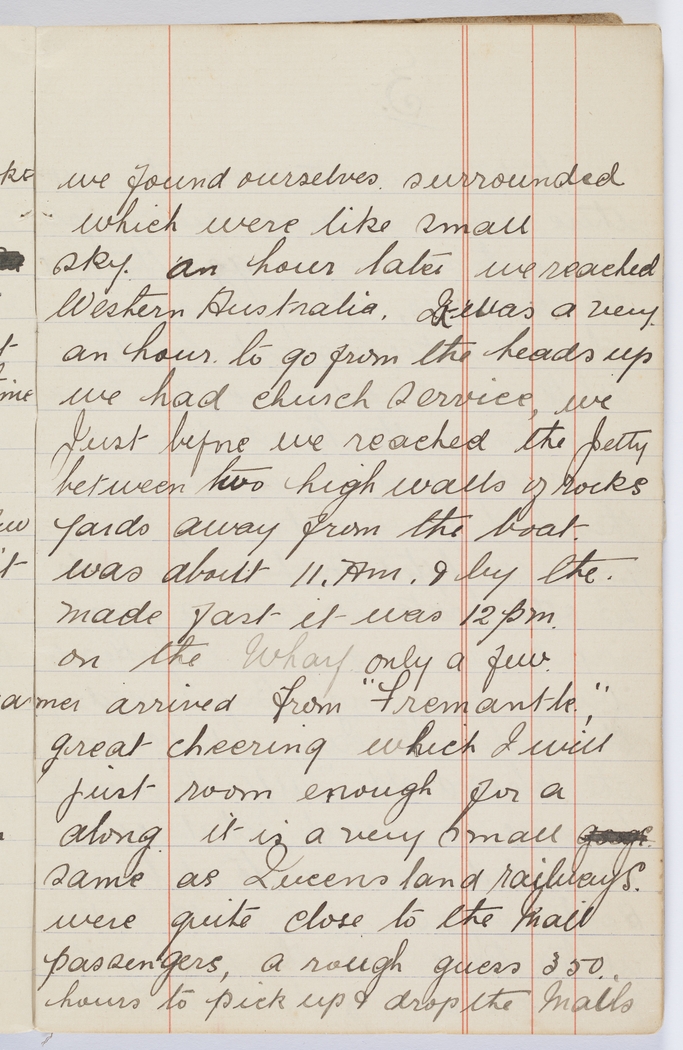 we found ourselves. surrounded
which were like small
sky. an hour later we reached
Western Australia. It was a very
an hour. to go from the heads up
we had church service, we
Just before we reached the Jetty
between two high walls of rocks
yards away from the boat.
was about 11. Am. & by the.
made fast it was 12 pm.
on the Wharf only a few.
amer arrived from "Fremantle,"
great cheering which I will
just room enough for a
along. it is a very small
same as Queensland railways.
were quite close to the Mail
passengers, a rough guess 350.
hours to pick up & drop the Mails